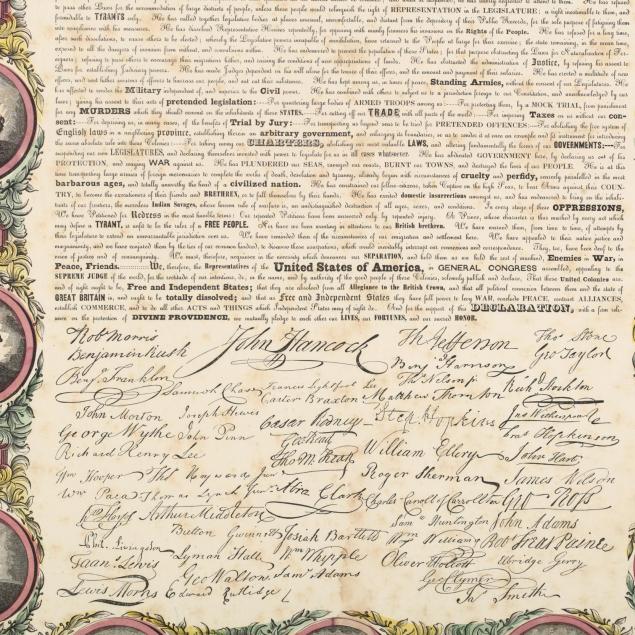 to pass other Laws for the accommodation of large districts of people, unless those people would relinquish the right of REPRESENTATION in the LEGISLATURE: a right inestimable to them, and
formidable to TYRANTS only. He has called together legislative bodies at places unusual, uncomfortable, and distant from the depository of their Public Records, for the sole purpose of fatiguing them
into compliance with his measures. He has dissolved Representative Houses repeatedly, for opposing with manly firmness his invasions on the Rights of the People. He has refused for a long time,
after such dissolutions, to cause others to be elected; whereby the Legislative powers incapable of annihilation, have returned to the People at large for their exercise; the state remaining, in the mean time,
exposed to all the dangers of invasion from without, and convulsions within. He has endeavored to prevent the population of these States; for that purpose obstructing the Laws for Naturalization of For-
eigners; refusing to pass others to encourage their migration hither, and raising the conditions of new appropriations of lands. He has obstructed the administration of Justice, by refusing his assent to
Laws for establishing Judiciary powers. He has made Judges dependent on his will alone for the tenure of their offices, and the amount and payment of their salaries. He has erected a multitude of new
offices, and sent hither swarms of officers to harrass our people, and eat out their substance. He has kept among us, in times of peace, Standing Armies, without the consent of our Legislatures. He
has affected to render the Military independent of, and superior to the Civil power. He has combined with others to subject us to a jurisdiction foreign to our Constitution, and unacknowledged by our
laws; giving his assent to their acts of pretended legislation:—For quartering large bodies of ARMED TROOPS among us:—For protecting them, by a MOCK TRIAL, from punishment
for any MURDERS which they should commit on the inhabitants of these STATES. For cutting off our TRADE with all parts of the world:—For imposing Taxes on us without our con-
sent:—For depriving us, in many cases, of the benefits of Trial by Jury:—For transporting us beyond seas to be tried for PRETENDED OFFENCES:—For abolishing the free system of
English laws in a neighboring province, establishing therein an arbitrary government, and enlarging its boundaries, so as to render it at once an example and fit instrument for introducing
the same absolute rule into these Colonies:—For taking away our CHARTERS, abolishing our most valuable LAWS, and altering fundamentally the forms of our GOVERNMENTS:—For
suspending our own LEGISLATURES, and declaring themselves invested with power to legislate for us in all cases whatsoever. He has abdicated GOVERNMENT here, by declaring us out of his
PROTECTION, and waging WAR against us. He has PLUNDERED our SEAS, ravaged our coasts, BURNT our TOWNS, and destroyed the lives of our PEOPLE. He is at this
time transporting large armies of foreign mercenaries to complete the works of death, desolation and tyranny, already begun with circumstances of cruelty and perfidy, scarcely paralleled in the most
barbarous ages, and totally unworthy the head of a civilized nation. He has constrained our fellow-citizens, taken Captive on the high Seas, to bear Arms against their COUN-
TRY, to become the executioners of their friends and BRETHREN, or to fall themselves by their hands. He has excited domestic insurrections amongst us, and has endeavored to bring on the inhabi-
tants of our frontiers, the merciless Indian Savages, whose known rule of warfare, is an undistinguished destruction of all ages, sexes, and conditions. In every stage of these OPPRESSIONS,
We have Petitioned for Redress in the most humble terms: Our repeated Petitions have been answered only by repeated injury. A Prince, whose character is thus marked by every act which
may define a TYRANT, is unfit to be the ruler of a FREE PEOPLE. Nor have we been wanting in attentions to our British brethren. We have warned them, from time to time, of attempts by
their legislature to extend an unwarrantable jurisdiction over us. We have reminded them of the circumstances of our emigration and settlement here. We have appealed to their native justice and
magnanimity, and we have conjured them by the ties of our common kindred, to disavow these usurpations, which would inevitably interrupt our connexions and correspondence. They, too, have been deaf to the
voice of justice and of consanguinity. We must, therefore, acquiesce in the necessity which denounces our SEPARATION, and hold them as we hold the rest of mankind, Enemies in War, in
Peace, Friends. We, therefore, the Representatives of the United States of America, in GENERAL CONGRESS assembled, appealing to the
SUPREME JUDGE of the world, for the rectitude of our intentions, do, in the name, and by authority of the good people of these Colonies, solemnly publish and declare, That these United Colonies are,
and of right ought to be, Free and Independent States; that they are absolved from all Allegiance to the British Crown, and that all political connexion between them and the state of
GREAT BRITAIN is, and ought to be totally dissolved; and that as Free and Independent States they have full power to levy WAR, conclude PEACE, contract ALLIANCES,
establish COMMERCE, and to do all other ACTS and THINGS which Independent States may of right do. And for the support of this DECLARATION, with a firm reli-
ance on the protection of DIVINE PROVIDENCE, we mutually pledge to each other our LIVES, our FORTUNES, and our sacred HONOR.
Robt Morris John Hancock Th Jefferson Thos Stone
Benjamin Rush Benj Harrison Geo Taylor
Benj. Franklin Samuel Chase Francis Lightfoot Lee Thos Nelson jr Richd Stockton
Carter Braxton Matthew Thornton
John Morton Joseph Hewes Caesar Rodney Step Hopkins Jno Witherspoon
George Wythe John Penn Geo Read Fras Hopkinson
Richard Henry Lee Tho M:Kean William Ellery John Hart
Wm Hooper Thos Heyward Junr Roger Sherman James Wilson
Wm Paca Thomas Lynch Junr Abra Clark Charles Carroll of Carrollton Geo Ross
Arthur Middleton Saml Huntington John Adams
Button Gwinnett Josiah Bartlett Wm Williams Robt Treat Paine
Phil. Livingston Lyman Hall Wm Whipple Oliver Wolcott Elbridge Gerry
Fran: Lewis Geo Walton Saml Adams Geo Clymer
Lewis Morris Edward Rutledge / Jas Smith